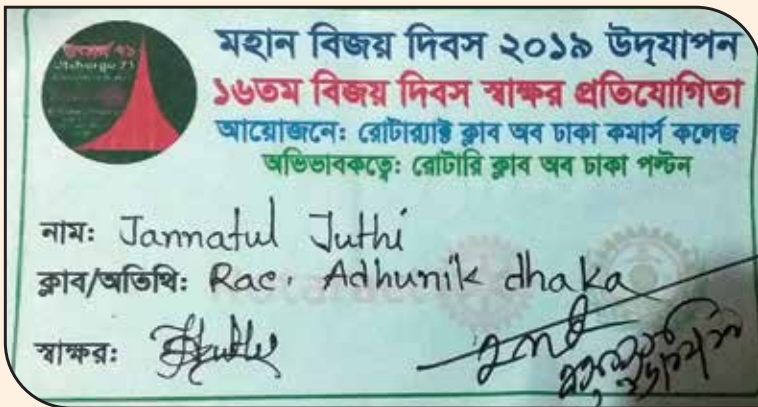 উৎসর্গ ৭১
Utshorgo 71
মহান বিজয় দিবস ২০১৯ উদ্‌যাপন
১৬তম বিজয় দিবস স্বাক্ষর প্রতিযোগিতা
আয়োজনে: রোটার‍্যাক্ট ক্লাব অব ঢাকা কমার্স কলেজ
অভিভাবকত্বে: রোটারি ক্লাব অব ঢাকা পল্টন
নাম: Jannatul Juthi
ক্লাব/অতিথি: Rac. Adhunik dhaka
স্বাক্ষর: